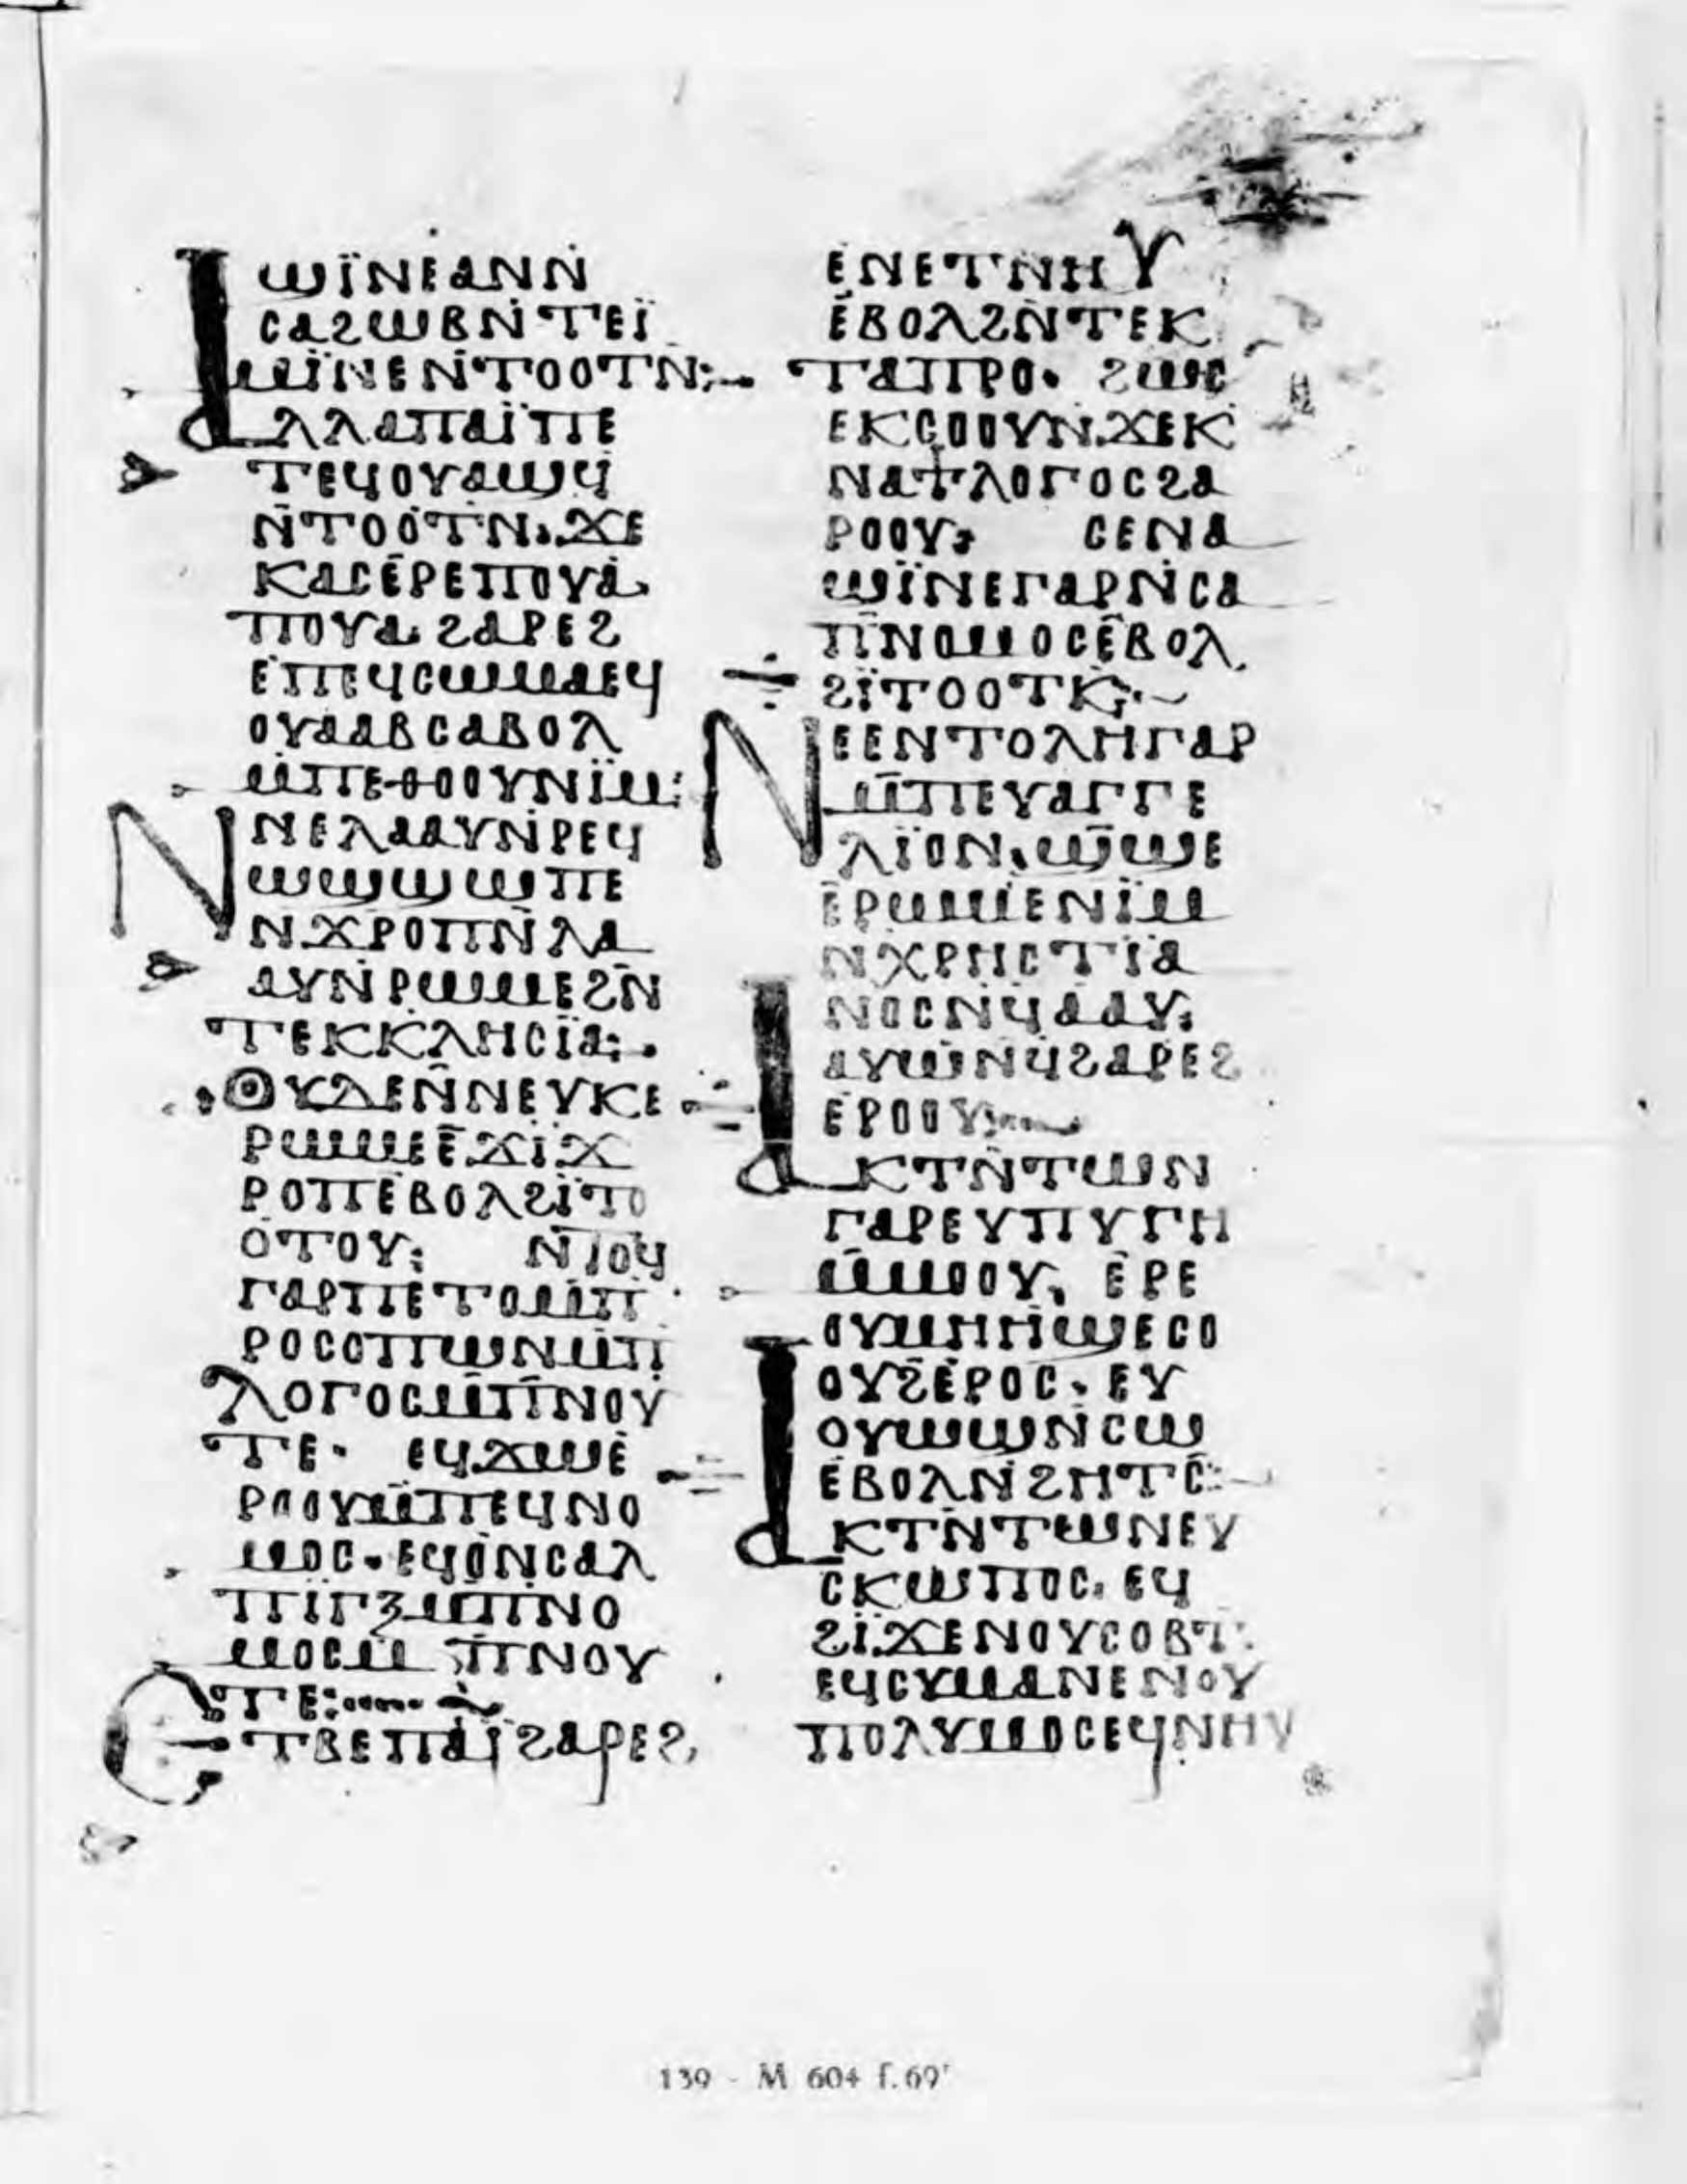 ϣⲓ̈ⲛⲉⲁⲛⲛ̇
ⲥⲁϩⲱⲃⲛ̇ⲧⲉⲓ̈
ⲙⲓ̈ⲛⲉⲛ̇ⲧⲟⲟⲧⲛ:
ⲁⲗⲗⲁⲡⲁⲓ̈ⲡⲉ
ⲧⲉϥⲟⲩⲁϣϥ̇
ⲛ̇ⲧⲟⲟⲧⲛ·ϫⲉ
ⲕⲁⲥⲉ̇ⲣⲉⲡⲟⲩⲁ
ⲡⲟⲩⲁ·ϩⲁⲣⲉϩ
ⲉ̇ⲡⲉϥⲥⲱⲙⲁⲉϥ
ⲟⲩⲁⲁⲃⲥⲁⲃⲟⲗ
ⲙ̇ⲡⲉⲑⲟⲟⲩⲛⲓ̈ⲙ:
ⲛⲛⲉⲗⲁⲁⲩⲛ̇ⲣⲉϥ
ϣⲱϣⲱⲡⲉ
ⲛϫⲣⲟⲡⲛ̇ⲗⲁ
ⲁⲩⲛ̇ⲣⲱⲙⲉϩⲛ̄
ⲧⲉⲕⲕⲗⲏⲥⲓ̈ⲁ:·
ⲟⲩⲇⲉⲛ̄ⲛⲉⲩⲕⲉ
ⲣⲱⲙⲉⲉ̄ϫⲓ̈ϫ
ⲣⲟⲡⲉ̇ⲃⲟⲗϩⲓ̈ⲧⲟ
ⲟⲧⲟⲩ: ⲛ̄ⲧⲟϥ
ⲅⲁⲣⲡⲉⲧⲟⲙ̄ⲡ
ⲣⲟⲥⲟⲡⲱⲛⲙ̄ⲡ
ⲗⲟⲅⲟⲥⲙ̄ⲡⲛⲟⲩ
ⲧⲉ· ⲉϥϫⲱⲉ̇
ⲣⲟⲟⲩⲙ̄ⲡⲉϥⲛⲟ
ⲙⲟⲥ·ⲉϥⲟ̇ⲛ̇ⲥⲁⲗ
ⲡⲓ̈ⲅⲝⲙ̄ⲡⲛⲟ
ⲙⲟⲥⲙ̄ⲡⲛⲟⲩ
ⲧⲉ:
ⲉⲧⲃⲉⲡⲁⲓ̈ϩⲁⲣⲉϩ
ⲉ̇ⲛⲉⲧⲛⲏⲩ
ⲉ̇ⲃⲟⲗϩⲛ̄ⲧⲉⲕ
ⲧⲁⲡⲣⲟ· ϩⲱⲥ
ⲉⲕⲥⲟⲟⲩⲛ·ϫⲉⲕ
ⲛⲁϯⲗⲟⲅⲟⲥϩⲁ
ⲣⲟⲟⲩ: ⲥⲉⲛⲁ
ϣⲓ̈ⲛⲉⲅⲁⲣⲛ̇ⲥⲁ
ⲡⲛⲟⲙⲟⲥⲉ̄ⲃⲟⲗ
ϩⲓ̈ⲧⲟⲟⲧⲕ̇:
ⲛⲉⲉⲛⲧⲟⲗⲏⲅⲁⲣ
ⲙ̄ⲡⲉⲩⲁⲅⲅⲉ
ⲗⲓ̈ⲟⲛ·ϣ̄ϣⲉ
ⲉ̇ⲣⲱⲙⲉⲛⲓ̈ⲙ
ⲛⲭⲣⲏⲥⲧⲓ̈ⲁ
ⲛⲟⲥⲛ̇ϥⲁⲁⲩ:
ⲁⲩⲱⲛ̇ϥϩⲁⲣⲉϩ
ⲉ̇ⲣⲟⲟⲩ:
ⲁⲕⲧⲛ̄ⲧⲱⲛ
ⲅⲁⲣⲉⲩⲡⲩⲅⲏ
ⲙ̄ⲙⲟⲟⲩ· ⲉ̇ⲣⲉ
ⲟⲩⲙⲏⲏϣⲉⲥⲟ
ⲟⲩϩⲉ̇ⲣⲟⲥ·ⲉⲩ
ⲟⲩⲱϣⲛ̇ⲥⲱ
ⲉ̇ⲃⲟⲗⲛ̇ϩⲏⲧⲥ̄:
ⲁⲕⲧⲛ̄ⲧⲱⲛⲉⲩ
ⲥⲕⲱⲡⲟⲥ·ⲉϥ
ϩⲓ̈ϫⲉⲛⲟⲩⲥⲟⲃⲧ
ⲉϥⲥⲩⲙⲁⲛⲉⲛⲟⲩ
ⲡⲟⲗⲩⲙⲟⲥⲉϥⲛⲏⲩ
139 - M 604 f.69ʳ